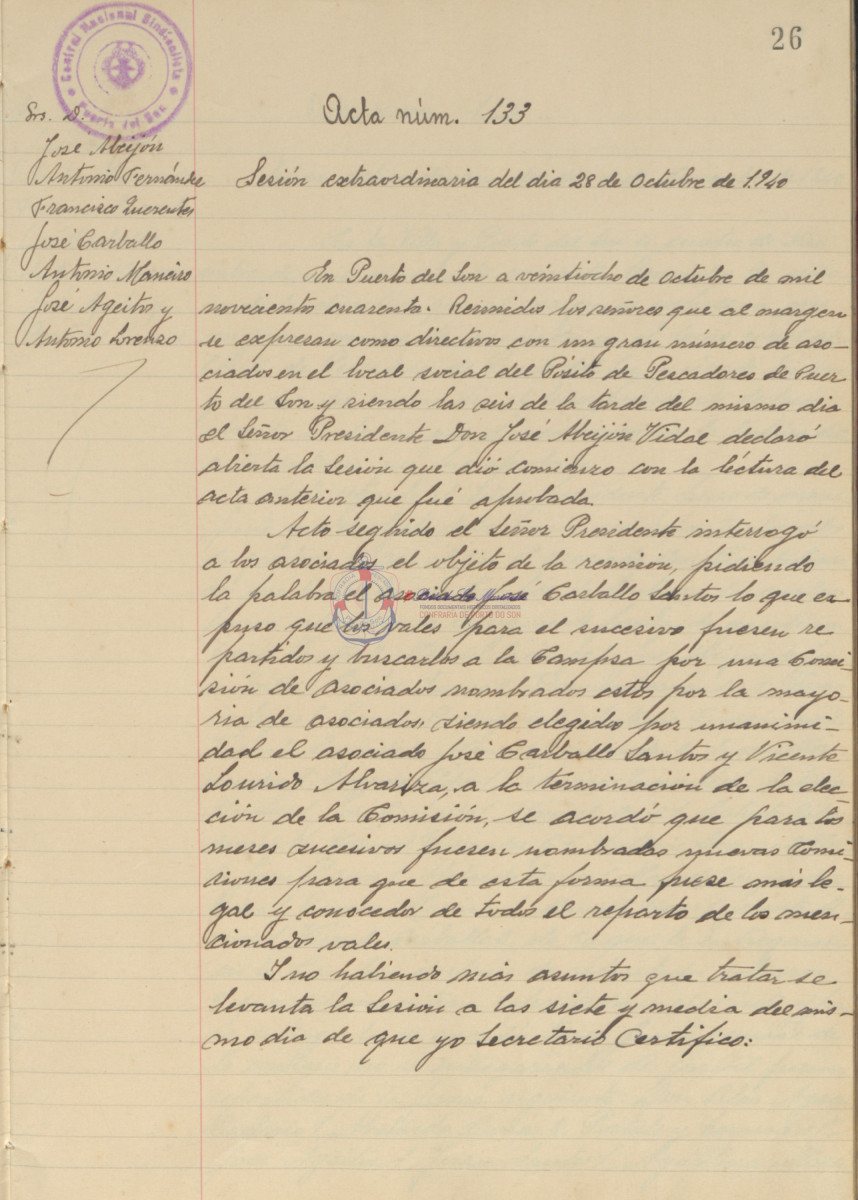 26
Central Nacional Sindicalista
Puerto del Son
Acta núm. 133
Srs. D.
José Abeijón
Antonio Fernández
Francisco
José Carballo
Antonio Maneiro
José Ageitos y
Antonio Lorenzo
Sesión extraordinaria del dia 28 de Octubre de 1940
En Puerto del Son a veintiocho de Octubre de mil
novecientos cuarenta. Reunidos los señores que al margen
se expresan como directivos con un gran número de aso-
ciados en el local social del Pósito de Pescadores de Puer
to del Son y siendo las seis de la tarde del mismo dia
el Señor Presidente Don José Abeijón Vidal declaró
abierta la Sesión que dió comienzo con la léctura del
acta anterior que fué aprobada.
Acto seguido el Señor Presidente interrogó
a los asociados el objeto de la reunión, pidiendo
la palabra el asociado José Carballo Santos lo que ex
puso que los vales para el sucesivo fuesen re
partidos y buscarlos a la Campsa por una Comi-
sión de asociados nombrados estos por la mayo-
ria de asociados, siendo elegidos por unanimi-
dad el asociado José Carballo Santos y Vicente
Lourido Alvariza, a la terminación de la elec-
ción de la Comisión, se acordó que para los
meses sucesivos fuesen nombradas nuevas Comi-
siones para que de esta forma fuese más le-
gal y conocedor de todos el reparto de los men-
cionados vales.
Y no habiendo más asuntos que tratar se
levanta la Sesión a las siete y media del mis-
mo dia de que yo Secretario Certifico:
CONFRARÍA DE PORTO DO SON